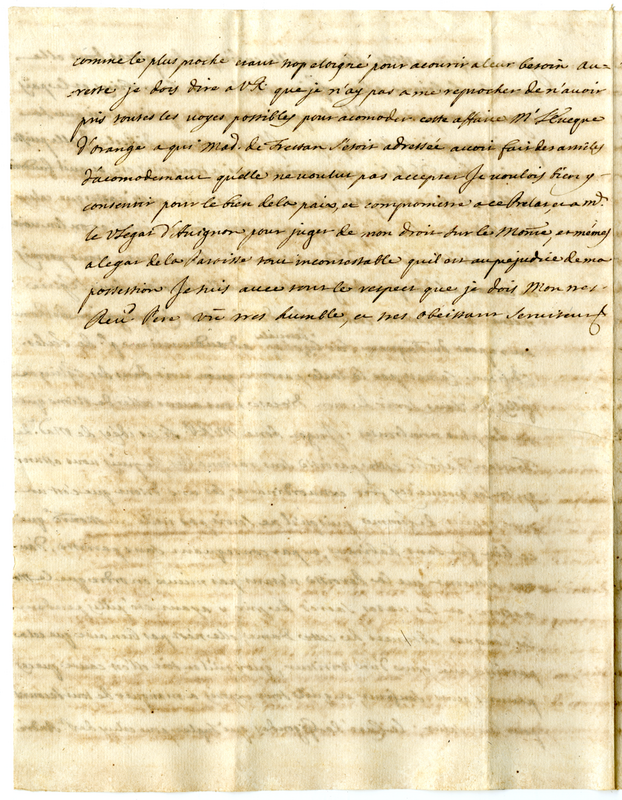 comme le plus proche etant trop eloigné pour acourir a leur besoin au
reste je dois dire a V R que je n'ay pas a me reprocher de n'avoir
pris toutes les voyes possibles pour acomoder cette affaire Mr L'Eveque
d'orange a qui Mad. de Tressan s'etoit adressée avoit fait des articles
d'acomodement qu'elle ne voulut pas accepter Je voulois bien y
consentir pour le bien de la paix, et compromettre a ce Prelat et a Mr.
le Vlegat d'Avignon pour juger de mon droit sur le et même
a legar de la Paroisse tout incontestable qu'il est au prejudice de ma
possession Je suis avec tout le respect que je dois Mon tres
Revd Pere vre tres humble, et tres obeissant serviteur